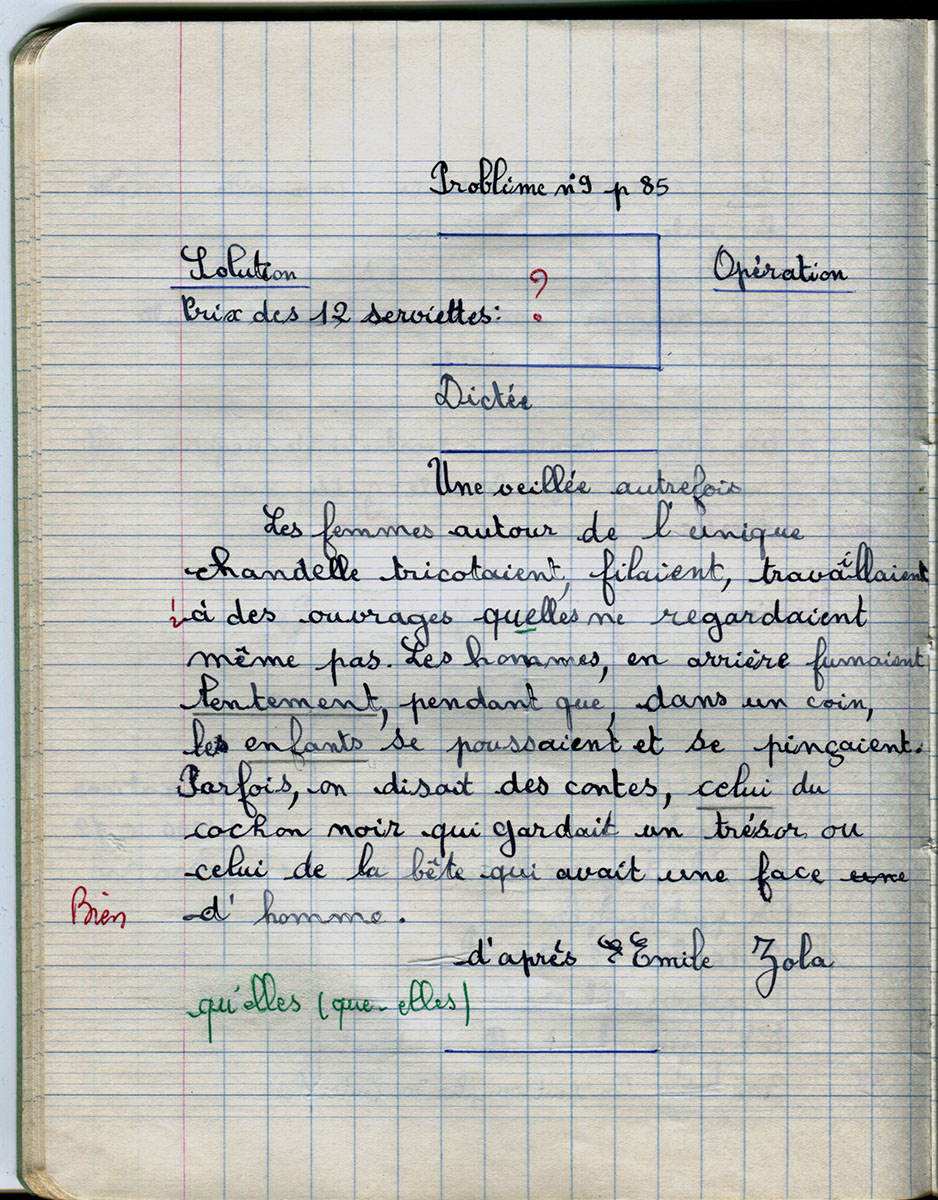 Problème n°9 p 85
Solution
?
Opération
Prix des 12 serviettes:
Dictée
Une veillée autrefois
Les femmes autour de l'unique
chandelle tricotaient, filaient, travaillaient
à des ouvrages quelles ne regardaient
même pas. Les hommes, en arrière fumaient
lentement, pendant que, dans un coin,
les enfants se poussaient et se pinçaient.
Parfois, on disait des contes, celui du
cochon noir qui gardait un trésor ou
celui de la bête qui avait une face une
Bien
d'homme.
d'après Emile Zola
qu'elles (que-elles)